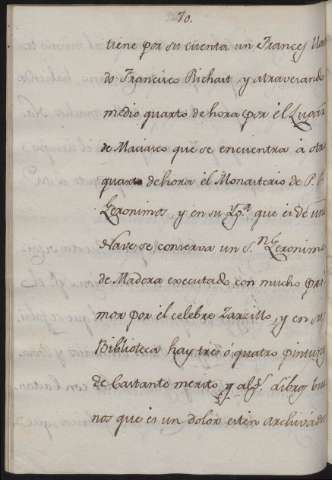 70.
tiene por su cuenta un Frances
do Francisco Richart y atravesando
medio quarto de hora por él Lugar
de Maciasco que se encuentra à otro
quarto de hora él Monasterio de P.
Geronimos, y en su Ygª que és de una
Nave se conserva un S.n Geronimo
de Madera executado con mucho pri
mor por él celebre Zarzillo, y en su
Biblioteca hay tres ó quatro pinturas
de bastante merito, y alg.s libros bue
nos que es un dolor estén archivados